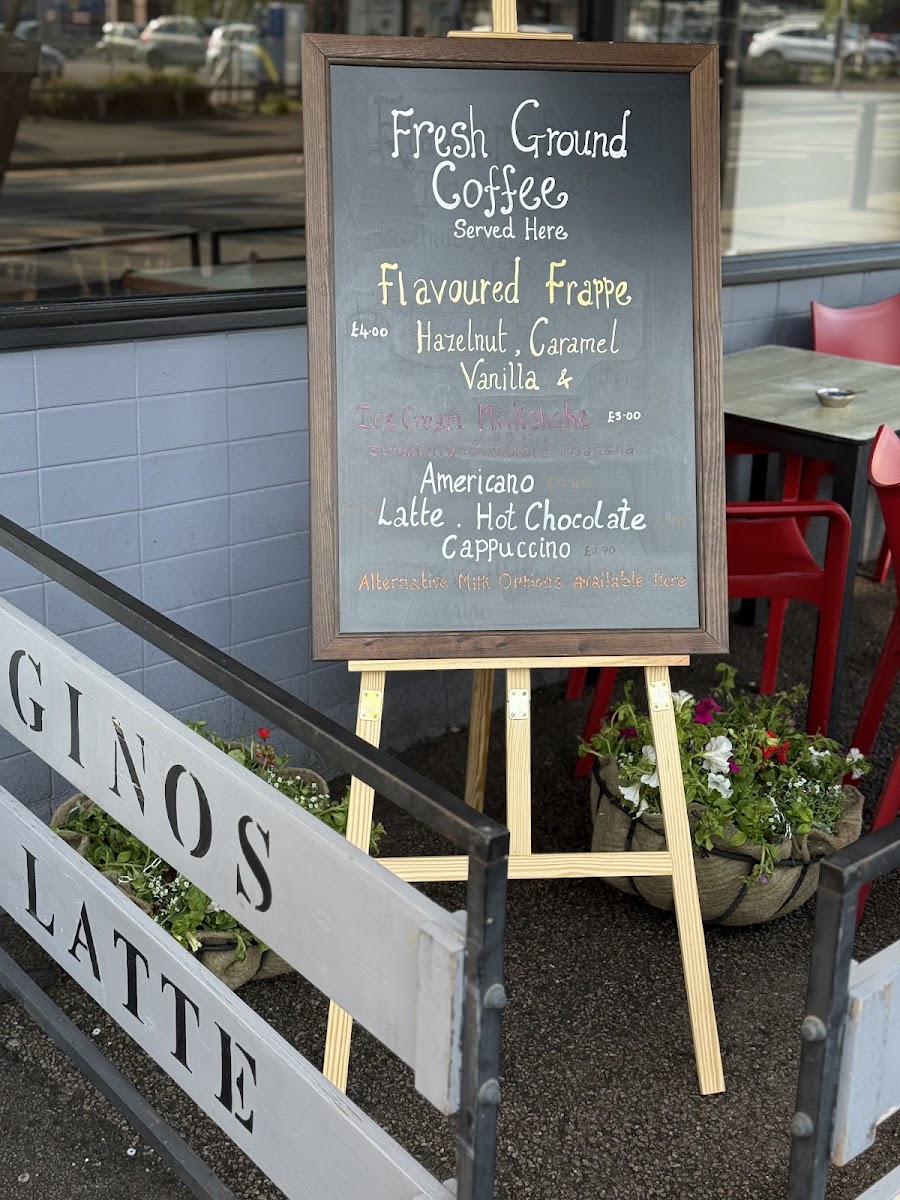 Fresh Ground
Coffee
Served Here
Flavoured Frappe
£4.00 Hazelnut, Caramel
Vanilla &
Ice Cream Milkshake £5.00
Americano
Latte . Hot Chocolate
Cappuccino £2.70
Alternative Milk Options available Here
GINOS
LATTE